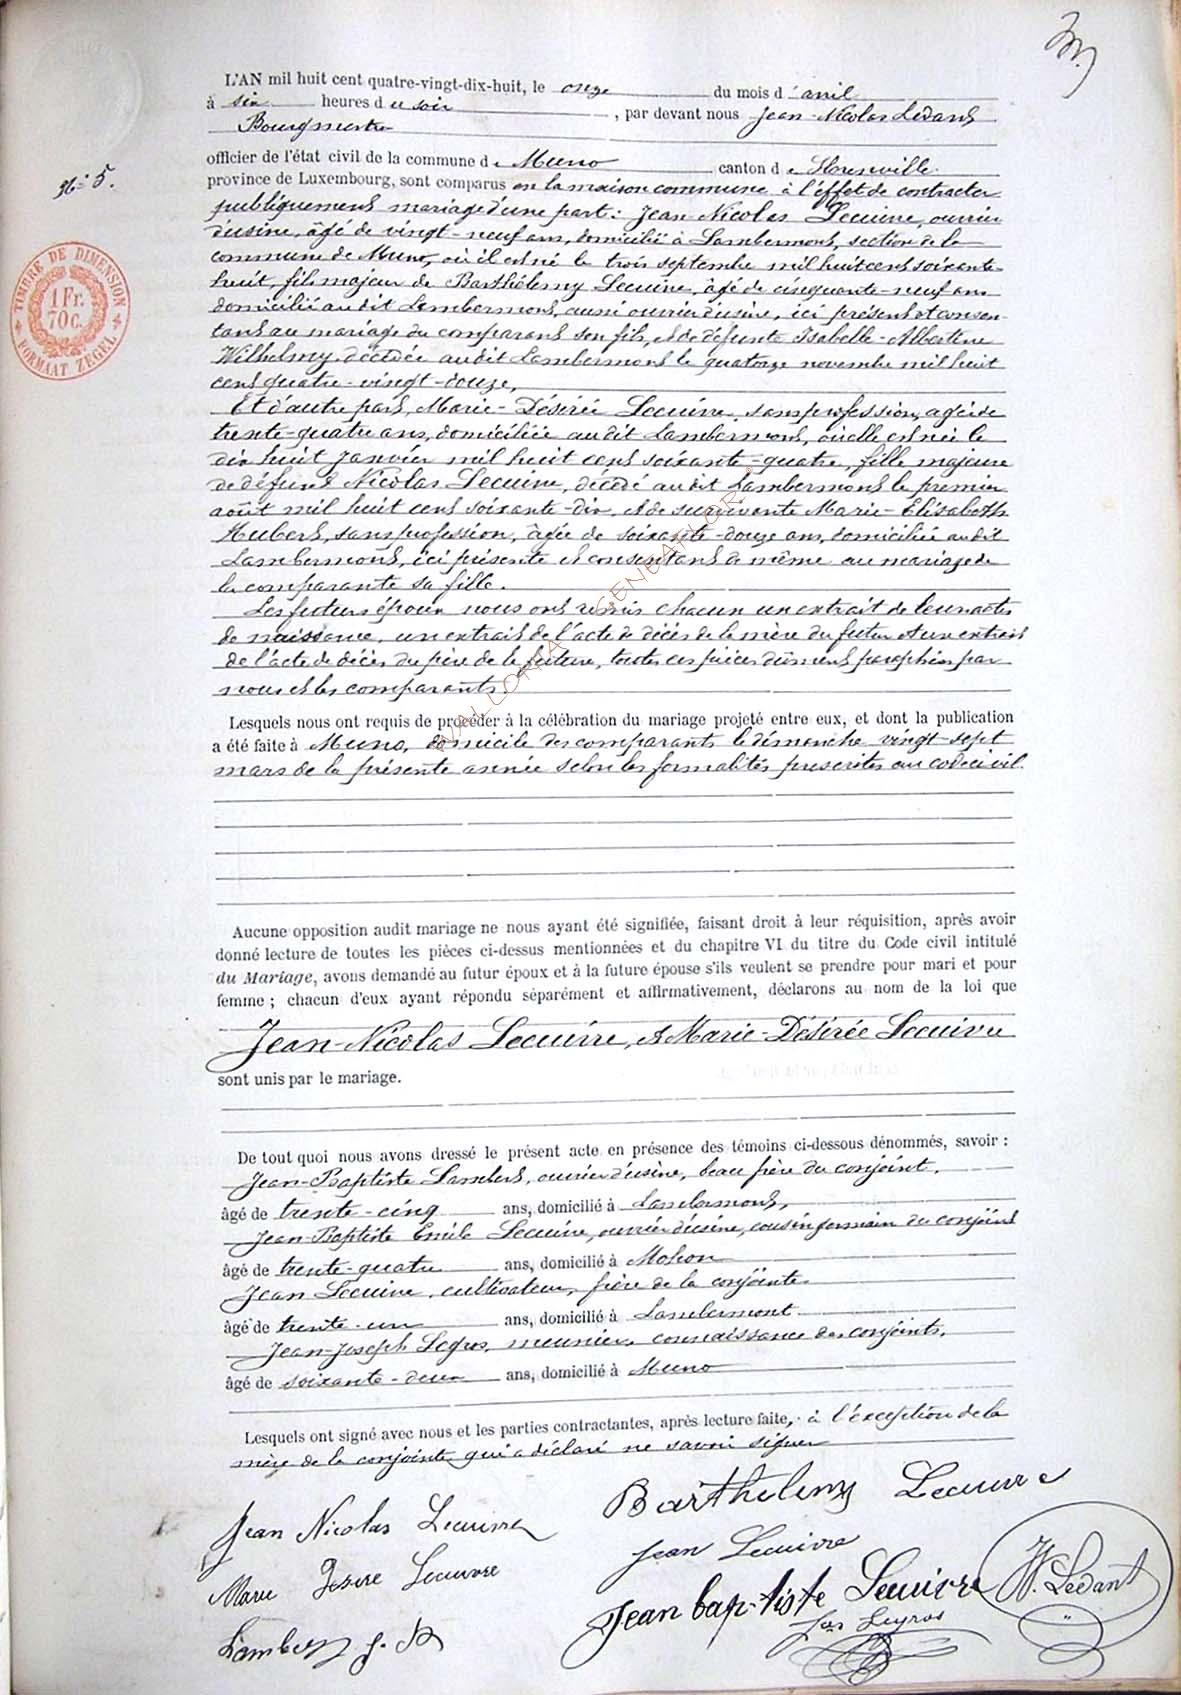 L'AN mil huit cent quatre-vingt-dix-huit, le onze du mois d'avril
à six heures du soir, par devant nous Jean-Nicolas Ledant
Bourgmestre
officier de l'état civil de la commune de Muno canton de Florenville
N° 5.
province de Luxembourg, sont comparus en la maison commune à l'effet de contracter
publiquement mariage d'une part : Jean-Nicolas Lecuivre, ouvrier
d'usine, âgé de vingt-neuf ans, domicilié à Lambermont, section de la
commune de Muno, où il est né le trois septembre mil huit cent soixante-
huit, fils majeur de Barthélemy Lecuivre, âgé de cinquante-neuf ans
domicilié au dit Lambermont, aussi ouvrier d'usine, ici présent et consen-
tant au mariage du comparant son fils, et de défunte Isabelle-Albertine
Wilhelmy décédée au dit Lambermont le quatorze novembre mil huit
cent quatre-vingt-douze,
TIMBRE DE DIMENSION
1 Fr.
70 c.
FORMAAT ZEGEL
Et d'autre part, Marie-Désirée Lecuivre, sans profession, agée de
trente-quatre ans, domiciliée au dit Lambermont, où elle est née le
dix huit Janvier mil huit cent soixante-quatre, fille majeure
de défunt Nicolas Lecuivre, décédé au dit Lambermont le premier
août mil huit cent soixante-dix, et de survivante Marie-Elisabeth
Hubert, sans profession, âgée de soixante-douze ans, domiciliée au dit
Lambermont, ici présente et consentant de même au mariage de
la comparante sa fille.
Les futurs époux nous ont remis chacun un extrait de leur acte
de naissance, un extrait de l'acte de décès de la mère du futur et un extrait
de l'acte de décès du père de la future, toutes ces pièces dûment paraphées par
nous et les comparants
WALLONIA GENEAFLOR
Lesquels nous ont requis de procéder à la célébration du mariage projeté entre eux, et dont la publication
a été faite à Muno, domicile des comparants le dimanche vingt-sept
mars de la présente année selon les formalités prescrites au code civil.
Aucune opposition audit mariage ne nous ayant été signifiée, faisant droit à leur réquisition, après avoir
donné lecture de toutes les pièces ci-dessus mentionnées et du chapitre VI du titre du Code civil intitulé
du Mariage, avons demandé au futur époux et à la future épouse s'ils veulent se prendre pour mari et pour
femme ; chacun d'eux ayant répondu séparément et affirmativement, déclarons au nom de la loi que
Jean-Nicolas Lecuivre, et Marie-Désirée Lecuivre
sont unis par le mariage.
De tout quoi nous avons dressé le présent acte en présence des témoins ci-dessous dénommés, savoir :
Jean-Baptiste Lambert, ouvrier d'usine, beau frère du conjoint,
âgé de trente-cinq ans, domicilié à Lambermont,
Jean-Baptiste Emile Lecuivre, ouvrier d'usine, cousin germain du conjoint
âgé de trente-quatre ans, domicilié à Mohon
Jean Lecuivre, cultivateur, frère de la conjointe
âgé de trente-un ans, domicilié à Lambermont
Jean-Joseph Legros, meunier, connaissance des conjoints,
âgé de soixante-deux ans, domicilié à Muno
Lesquels ont signé avec nous et les parties contractantes, après lecture faite, à l'exception de la
mère de la conjointe qui a déclaré ne savoir signer
Jean Nicolas Lecuivre
Barthelemy Lecuivre
Jean Lecuivre
Marie Desire Lecuivre
Jean baptiste Lecuivre
N. Ledant
Jos Legros
Lambert J. B